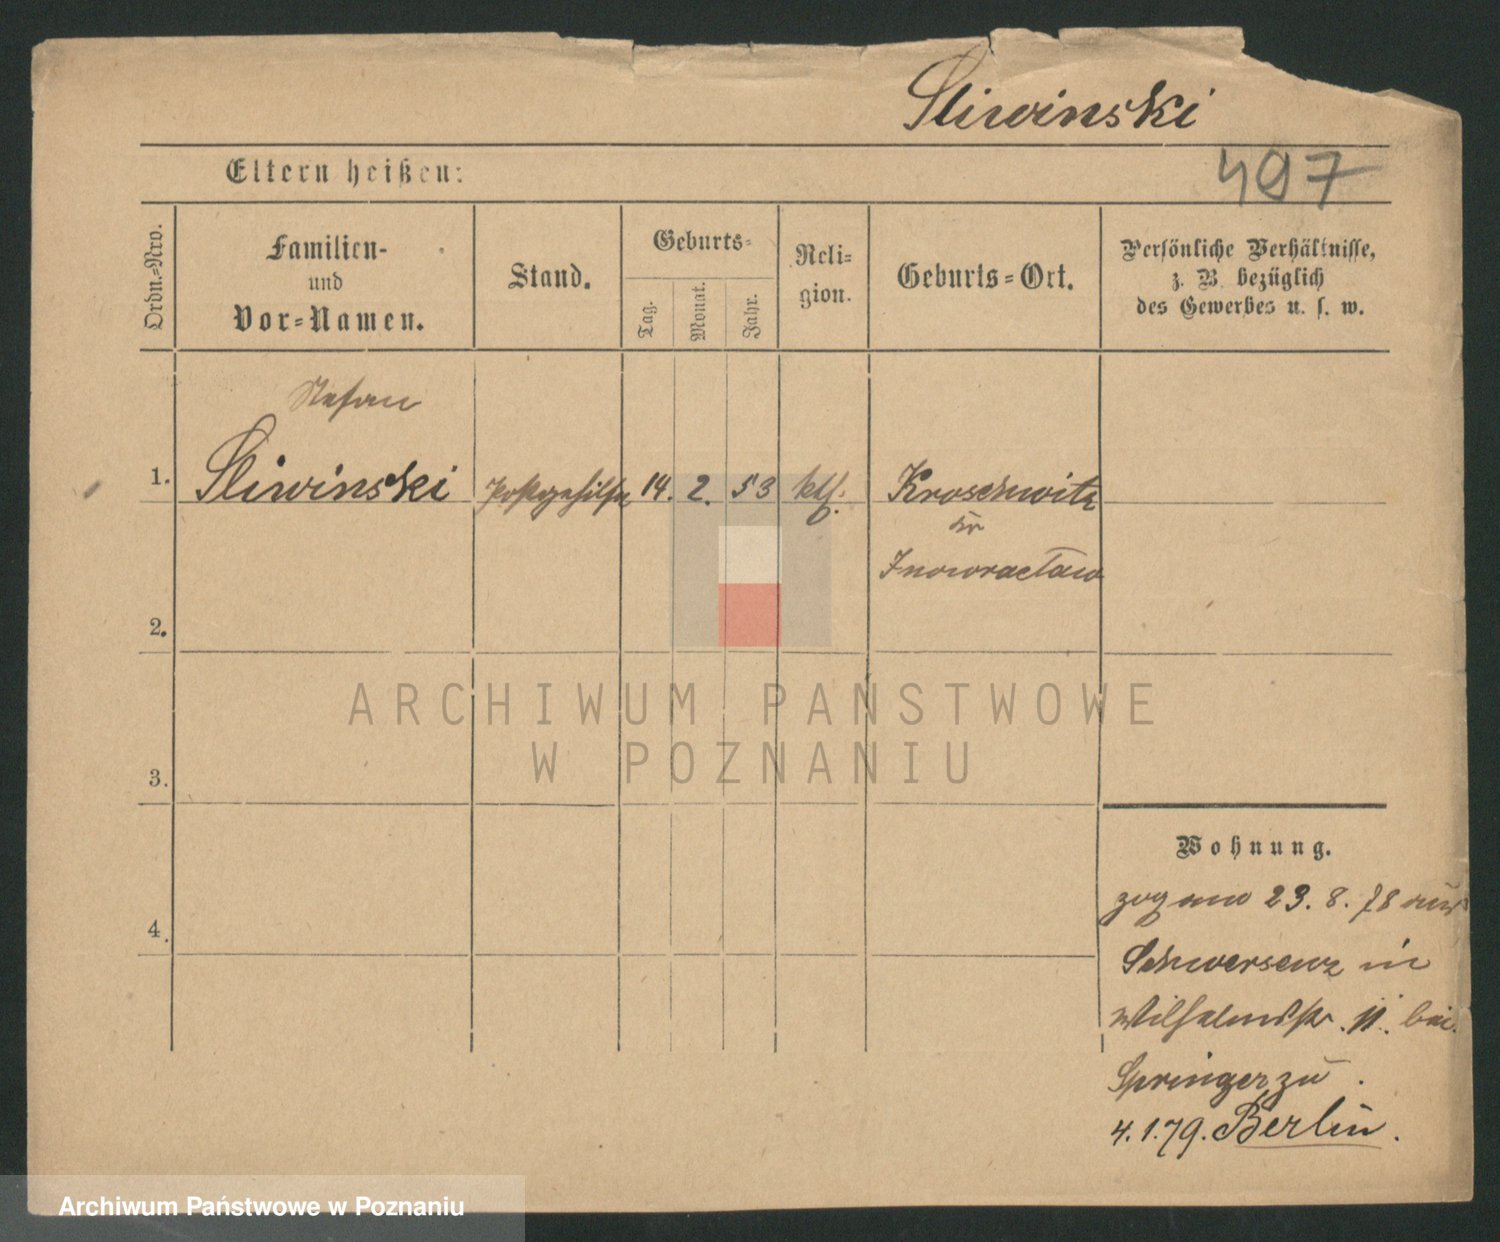 Sliwinski
497
Eltern heißen:
Ordn.-Nro.
Familien-
und
Vor-Namen.
Stand.
Geburts-
Tag.
Monat.
Jahr.
Reli-
gion.
Geburts-Ort.
Persönliche Verhältnisse,
z. B. bezüglich
des Gewerbes u. s. w.
Stefan
1. Sliwinski Postgehilfe 14. 2. 53 ktl. Kroschwitz
Kr
Inowracław
2.
3.
4.
Wohnung.
zog am 23. 8. 78 aus
Schwersenz in
Wilhelmstr. 11. bei
Springer zu
4.1.79. Berlin.
ARCHIWUM PAŃSTWOWE
W POZNANIU
Archiwum Państwowe w Poznaniu